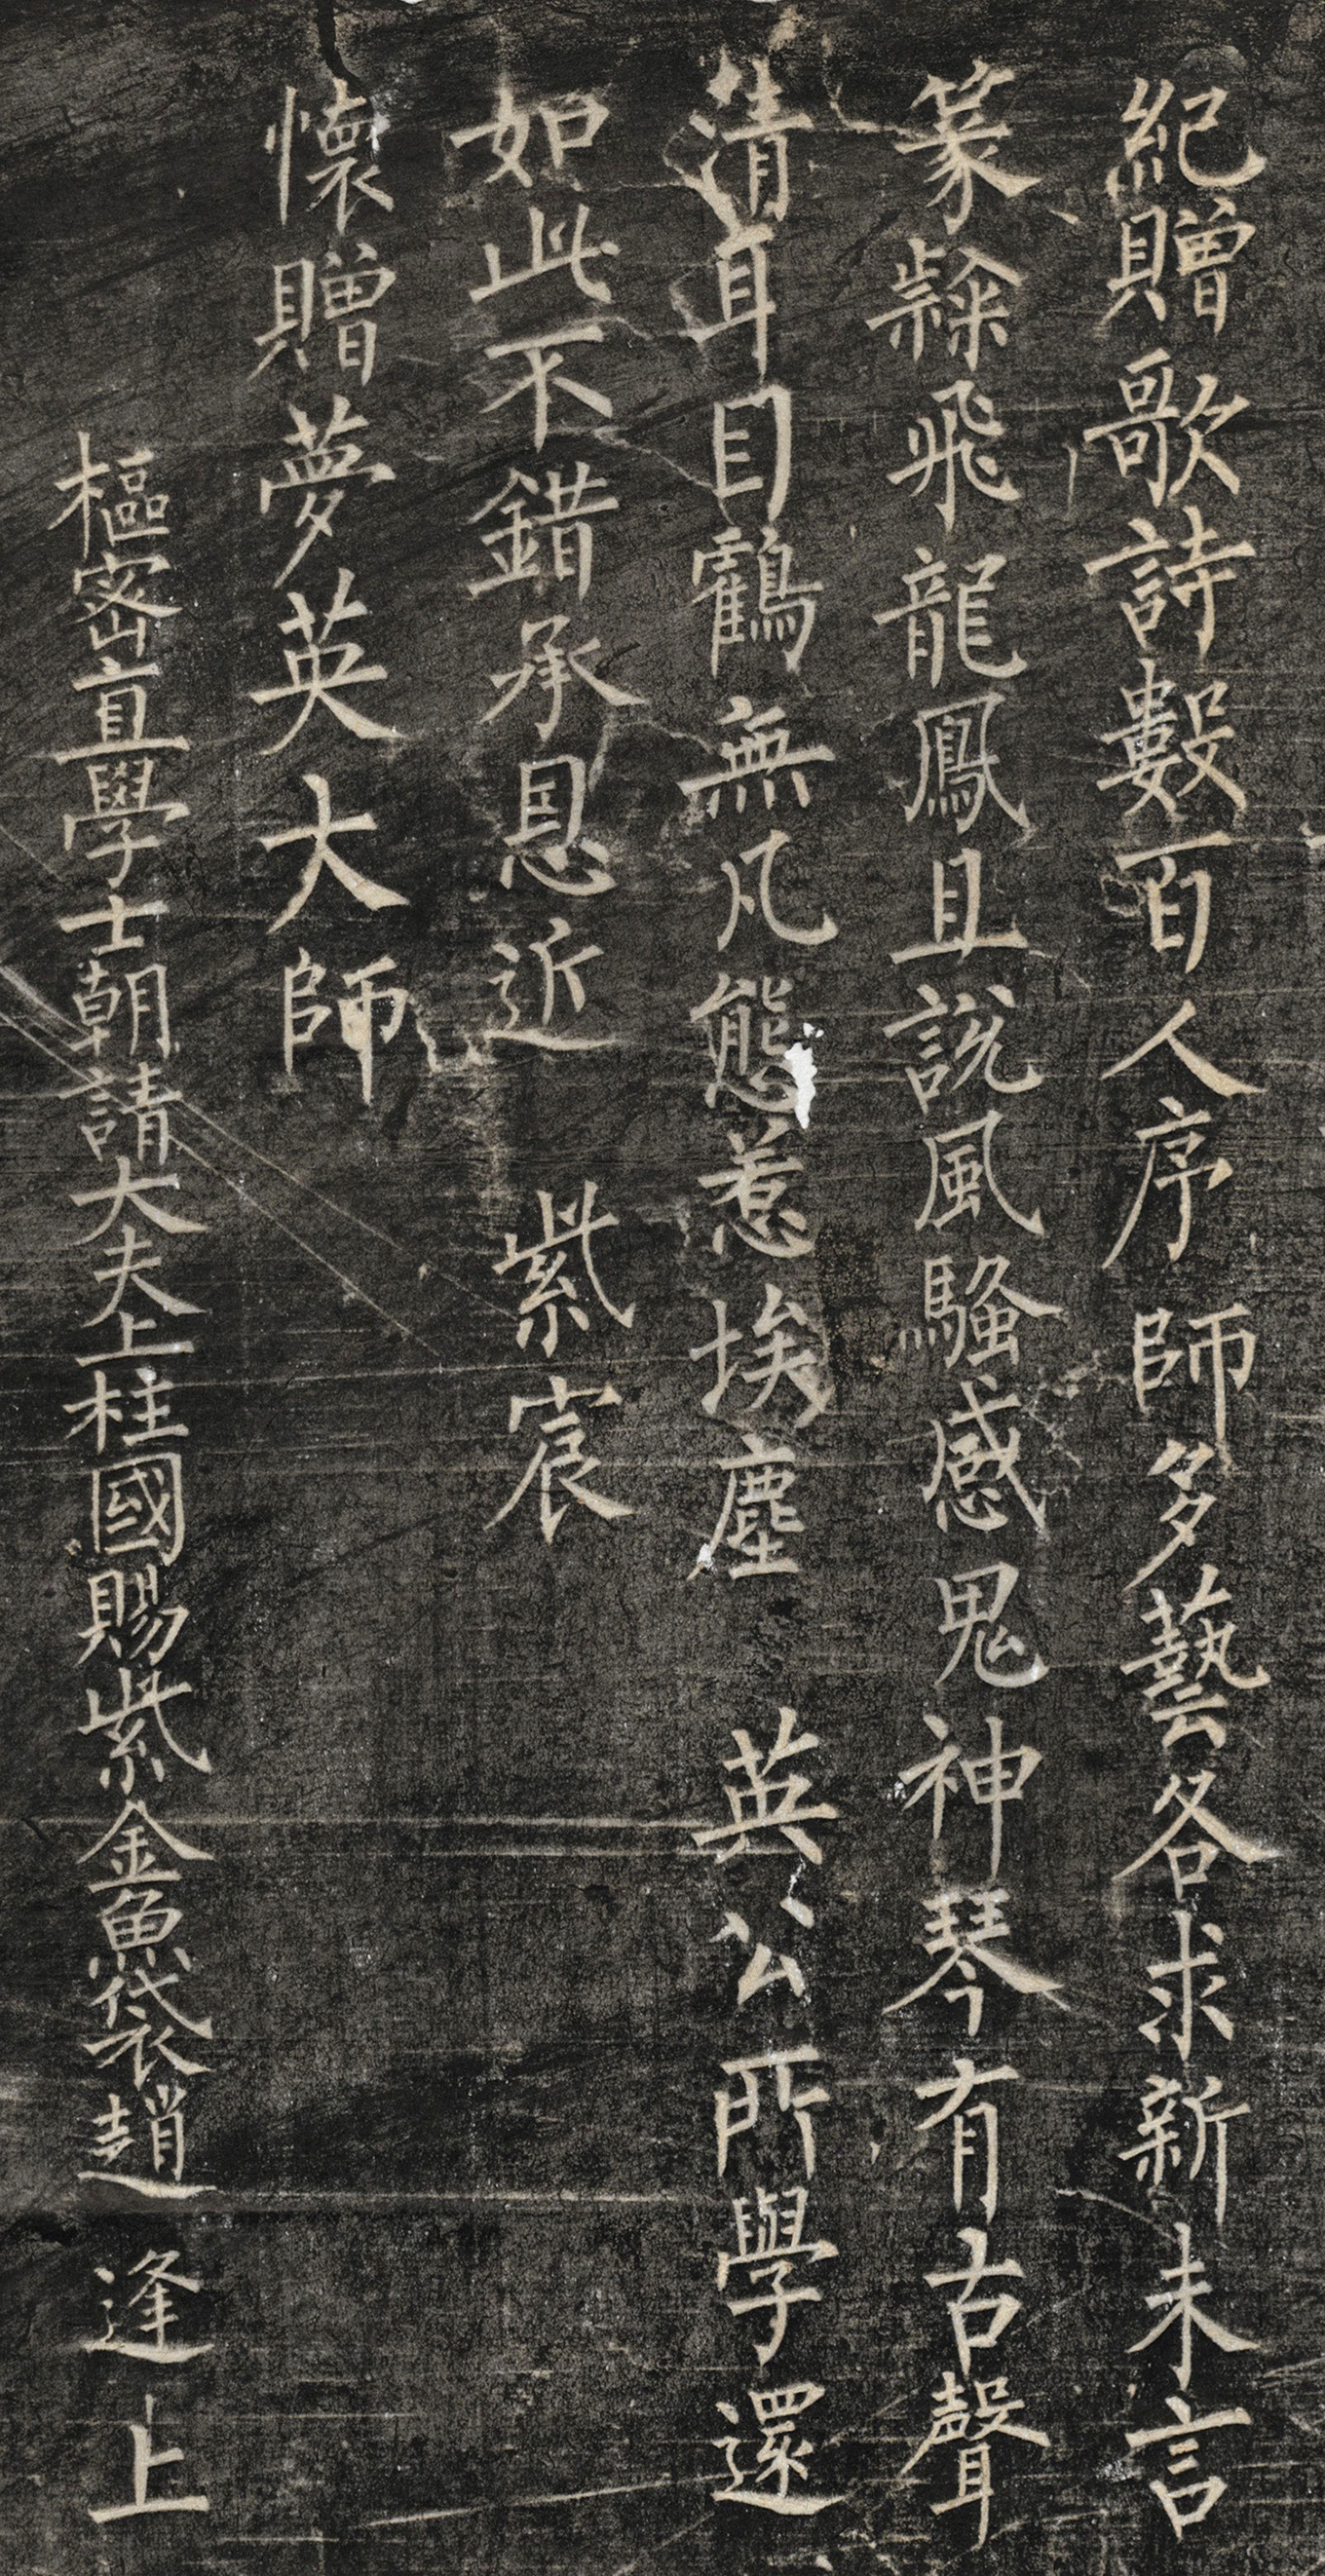 紀贈歌詩數百人序 師多藝各求新未言
篆𨽻飛龍鳳且說風騷感鬼神琴有古聲
清耳目鶴無凡態惹埃塵 英公所學還
如此不錯承恩近 紫宸
懷贈夢英大師
樞密直學士朝請大夫上柱國賜紫金魚袋趙逢上